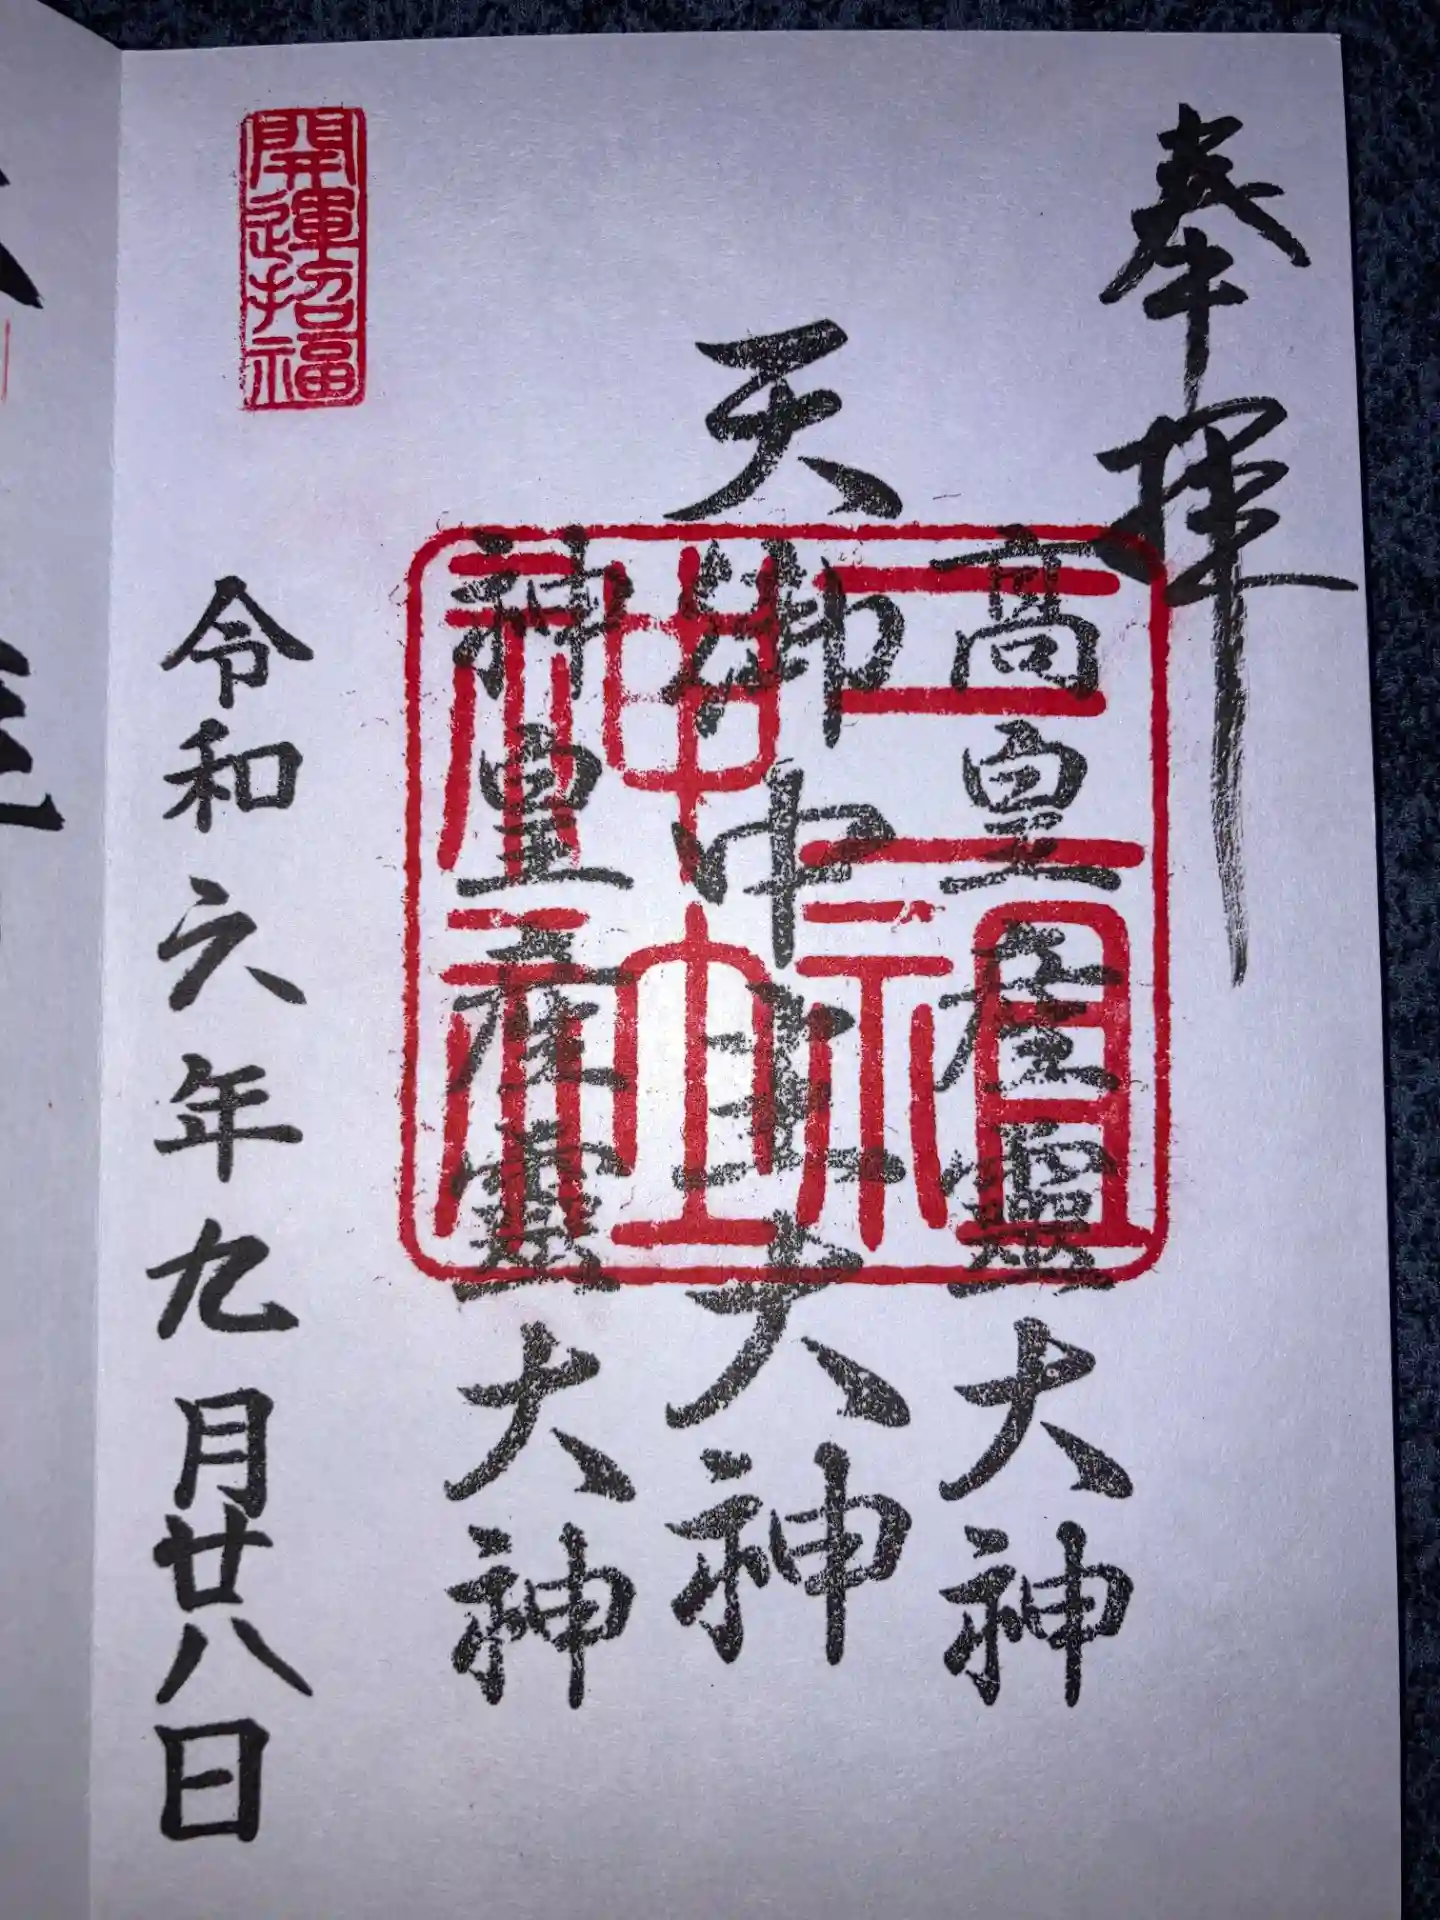 奉拝
高皇産靈大神
天御中主大神
神皇産靈大神
三祖神社
開運招福
令和六年九月廿八日